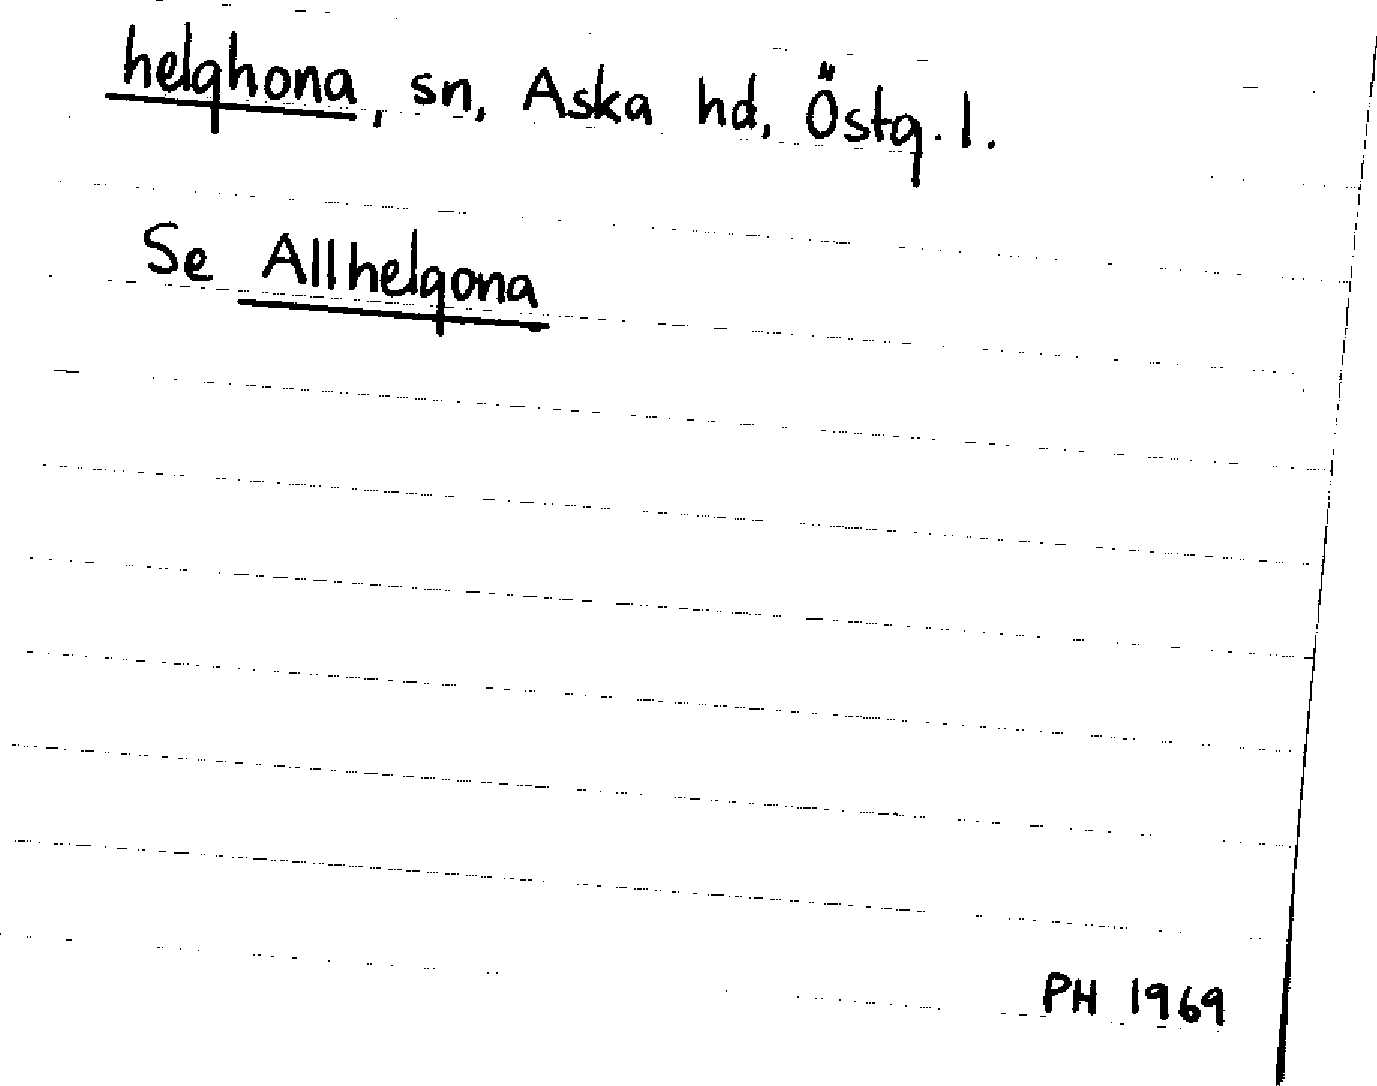 helghona, sn, Aska hd, Östg. l.
Se Allhelgona
PH 1969